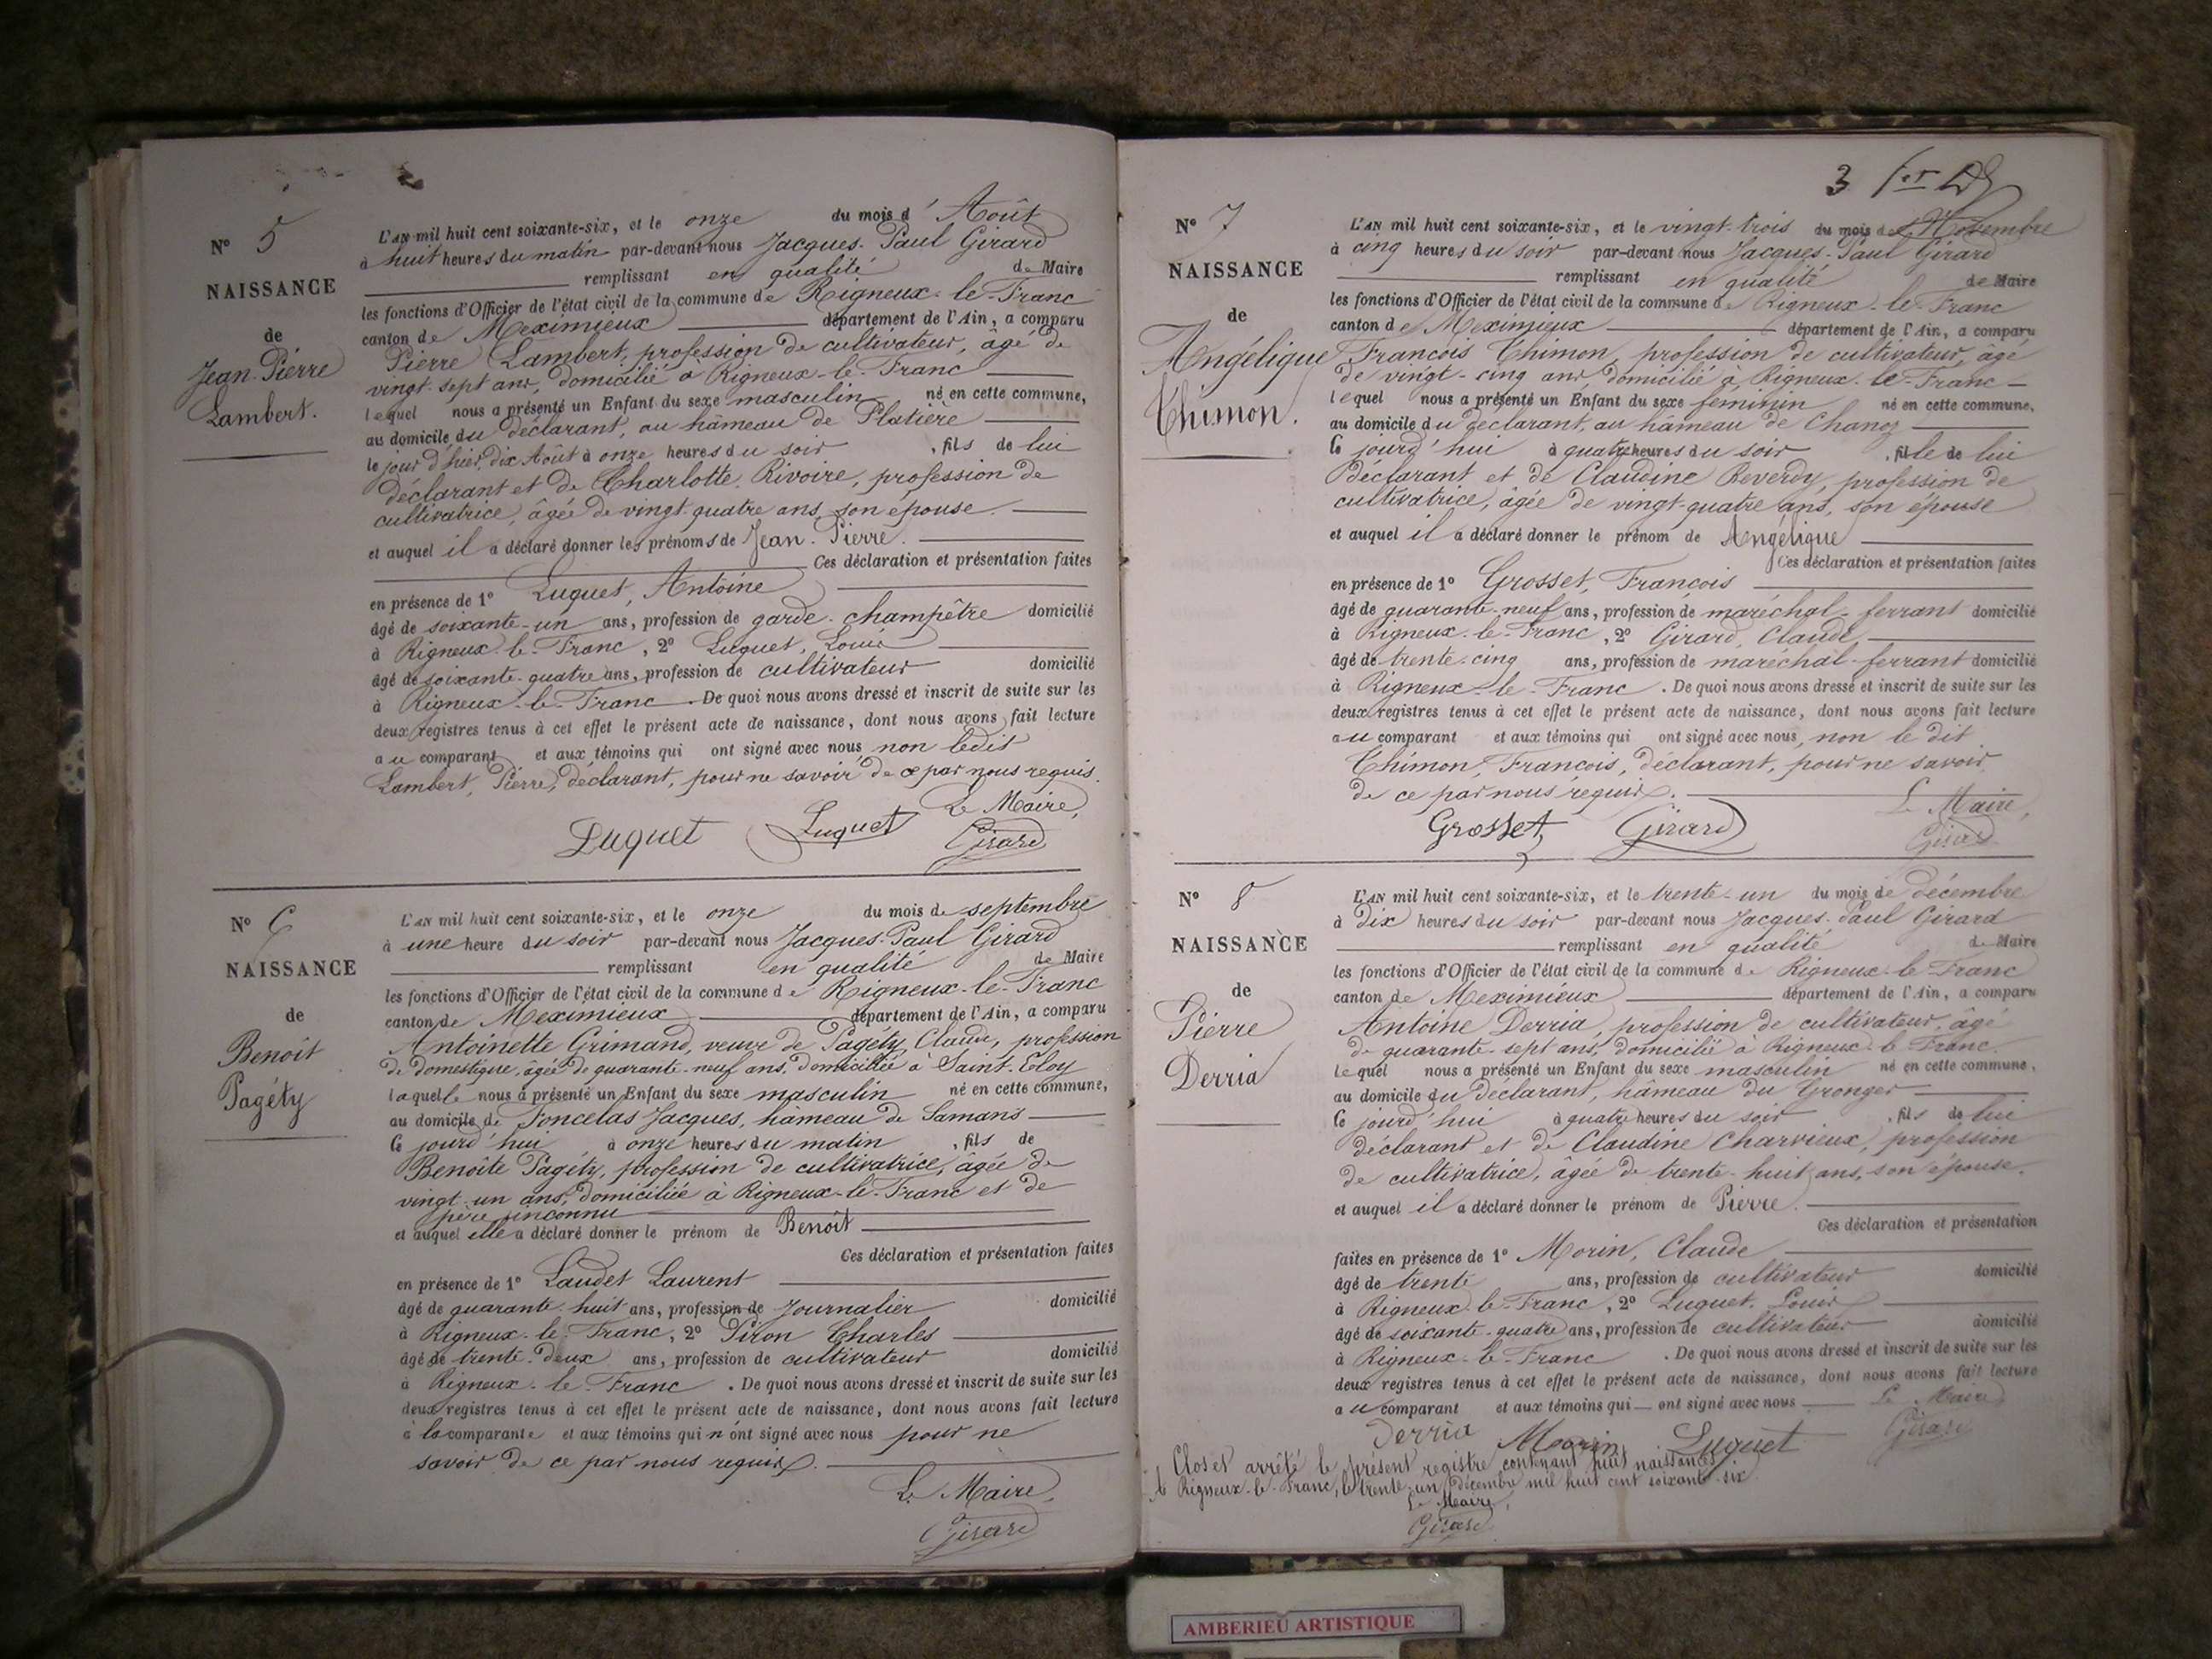 Nº 5
NAISSANCE
de
Jean-Pierre
Lambert.
L'AN mil huit cent soixante-six, et le onze du mois d'Août
à huit heures du matin par-devant nous Jacques-Paul Girard
remplissant en qualité de Maire
les fonctions d'Officier de l'état civil de la commune de Rigneux-le-Franc
canton de Meximieux département de l'Ain, a comparu
Pierre Lambert, profession de cultivateur, âgé de
vingt-sept ans, domicilié à Rigneux-le-Franc
lequel nous a présenté un Enfant du sexe masculin né en cette commune,
au domicile du déclarant, au hâmeau de Platière
le jour d'hier, dix Août à onze heures du soir, fils de lui
déclarant et de Charlotte Rivoire, profession de
cultivatrice, âgée de vingt-quatre ans, son épouse.
et auquel il a déclaré donner les prénoms de Jean-Pierre.
Ces déclaration et présentation faites
en présence de 1º Luquet, Antoine
âgé de soixante-un ans, profession de garde-champêtre domicilié
à Rigneux-le-Franc, 2º Luquet, Louis
âgé de soixante-quatre ans, profession de cultivateur domicilié
à Rigneux-le-Franc. De quoi nous avons dressé et inscrit de suite sur les
deux registres tenus à cet effet le présent acte de naissance, dont nous avons fait lecture
au comparant et aux témoins qui ont signé avec nous non ledit
Lambert, Pierre, déclarant, pour ne savoir de ce par nous requis.
Le Maire,
Luquet Luquet Girard
Nº 6
NAISSANCE
de
Benoît
Pagéty
L'AN mil huit cent soixante-six, et le onze du mois de septembre
à une heure du soir par-devant nous Jacques-Paul Girard
remplissant en qualité de Maire
les fonctions d'Officier de l'état civil de la commune de Rigneux-le-Franc
canton de Meximieux département de l'Ain, a comparu
Antoinette Grimand, veuve de Pagéty Claude, profession
de domestique, âgée de quarante-neuf ans, domiciliée à Saint-Eloy
laquelle nous a présenté un Enfant du sexe masculin né en cette commune,
au domicile de Foncelas Jacques, hâmeau de Samans
Ce jourd'hui à onze heures du matin, fils de
Benoîte Pagéty, profession de cultivatrice, âgée de
vingt-un ans, domiciliée à Rigneux-le-Franc et de
père inconnu
et auquel elle a déclaré donner le prénom de Benoît
Ces déclaration et présentation faites
en présence de 1º Laudet Laurent
âgé de quarante-huit ans, profession de Journalier domicilié
à Rigneux-le-Franc, 2º Piron Charles
âgé de trente-deux ans, profession de cultivateur domicilié
à Rigneux-le-Franc. De quoi nous avons dressé et inscrit de suite sur les
deux registres tenus à cet effet le présent acte de naissance, dont nous avons fait lecture
à la comparante et aux témoins qui n'ont signé avec nous pour ne
savoir de ce par nous requis.
Le Maire,
Girard
3
Nº 7
NAISSANCE
de
Angélique
Thimon.
L'AN mil huit cent soixante-six, et le vingt-trois du mois de Novembre
à cinq heures du soir par-devant nous Jacques-Paul Girard
remplissant en qualité de Maire
les fonctions d'Officier de l'état civil de la commune de Rigneux-le-Franc
canton de Meximieux département de l'Ain, a comparu
François Thimon, profession de cultivateur, âgé
de vingt-cinq ans domicilié à Rigneux-le-Franc
lequel nous a présenté un Enfant du sexe féminin né en cette commune,
au domicile du déclarant, au hâmeau de Chanoz
Ce jourd'hui à quatre heures du soir, fille de lui
déclarant et de Claudine Reverdy, profession de
cultivatrice, âgée de vingt-quatre ans, son épouse
et auquel il a déclaré donner le prénom de Angélique
Ces déclaration et présentation faites
en présence de 1º Grosset, François
âgé de quarante-neuf ans, profession de maréchal-ferrant domicilié
à Rigneux-le-Franc, 2º Girard, Claude,
âgé de trente-cinq ans, profession de maréchal-ferrant domicilié
à Rigneux-le-Franc. De quoi nous avons dressé et inscrit de suite sur les
deux registres tenus à cet effet le présent acte de naissance, dont nous avons fait lecture
au comparant et aux témoins qui ont signé avec nous, non le dit
Thimon, François, déclarant, pour ne savoir
de ce par nous requis.
Le Maire,
Grosset, Girard Girard
Nº 8
NAISSANCE
de
Pierre
Derria
L'AN mil huit cent soixante-six, et le trente-un du mois de décembre
à dix heures du soir par-devant nous Jacques-Paul Girard
remplissant en qualité de Maire
les fonctions d'Officier de l'état civil de la commune de Rigneux-le-Franc
canton de Meximieux département de l'Ain, a comparu
Antoine Derria, profession de cultivateur, âgé
de quarante-sept ans, domicilié à Rigneux-le-Franc.
lequel nous a présenté un Enfant du sexe masculin né en cette commune,
au domicile du déclarant, hâmeau du Gronger
Ce jourd'hui à quatre heures du soir, fils de lui
déclarant et de Claudine Charvieux, profession
de cultivatrice, âgée de trente-huit ans, son épouse.
et auquel il a déclaré donner le prénom de Pierre.
Ces déclaration et présentation
faites en présence de 1º Morin, Claude
âgé de trente ans, profession de cultivateur domicilié
à Rigneux-le-Franc, 2º Luquet, Louis
âgé de soixante-quatre ans, profession de cultivateur domicilié
à Rigneux-le-Franc. De quoi nous avons dressé et inscrit de suite sur les
deux registres tenus à cet effet le présent acte de naissance, dont nous avons fait lecture
au comparant et aux témoins qui ont signé avec nous Le Maire
Derria Morin Luquet Girard
Clos et arrêté le présent registre contenant huit naissances
A Rigneux-le-Franc, le trente-un Décembre mil huit cent soixante-six
Le Maire,
Girard
AMBERIEU ARTISTIQUE